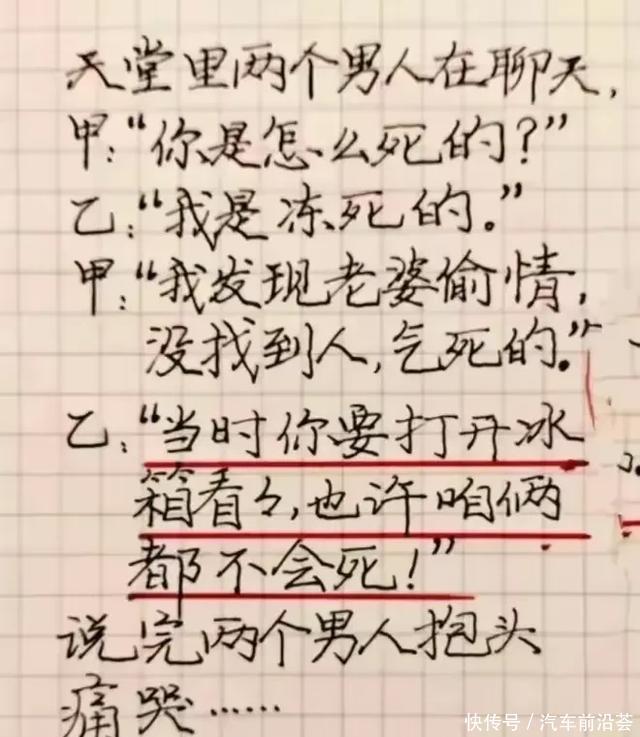 天堂里两个男人在聊天，
甲：“你是怎么死的？”
乙：“我是冻死的。”
甲：“我发现老婆偷情，
没找到人，气死的。”
乙：“当时你要打开冰
箱看々，也许咱俩
都不会死！”
说完两个男人抱头
痛哭……
快传号／汽车前沿荟